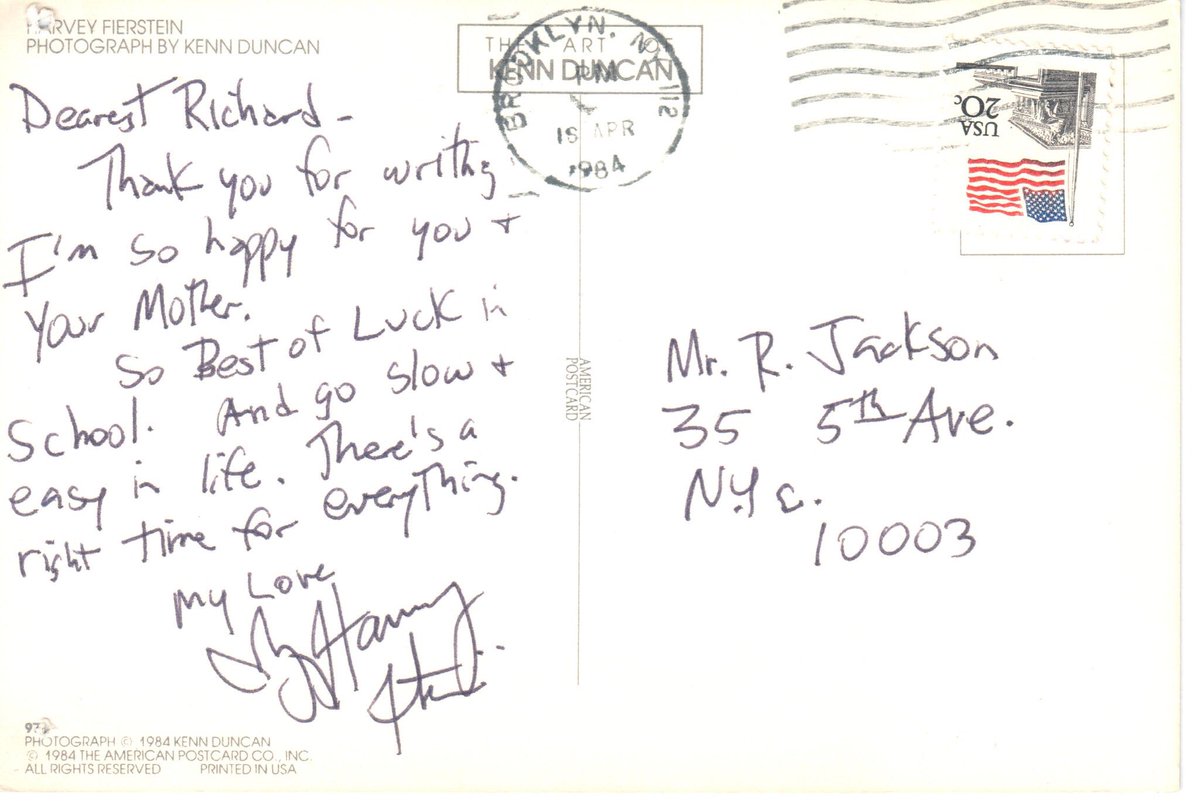 HARVEY FIERSTEIN
PHOTOGRAPH BY KENN DUNCAN
Dearest Richard -
Thank you for writing
I'm so happy for you +
your Mother.
So Best of Luck in
School. And go slow +
easy in life. There's a
right time for everything.
My Love
Harvey
97
PHOTOGRAPH © 1984 KENN DUNCAN
© 1984 THE AMERICAN POSTCARD CO., INC.
ALL RIGHTS RESERVED PRINTED IN USA
THE ART OF
KENN DUNCAN
BROOKLYN, NY 112
PM
APR
1984
USA
20c
AMERICAN
POSTCARD
Mr. R. Jackson
35 5th Ave.
N.Y.C.
10003